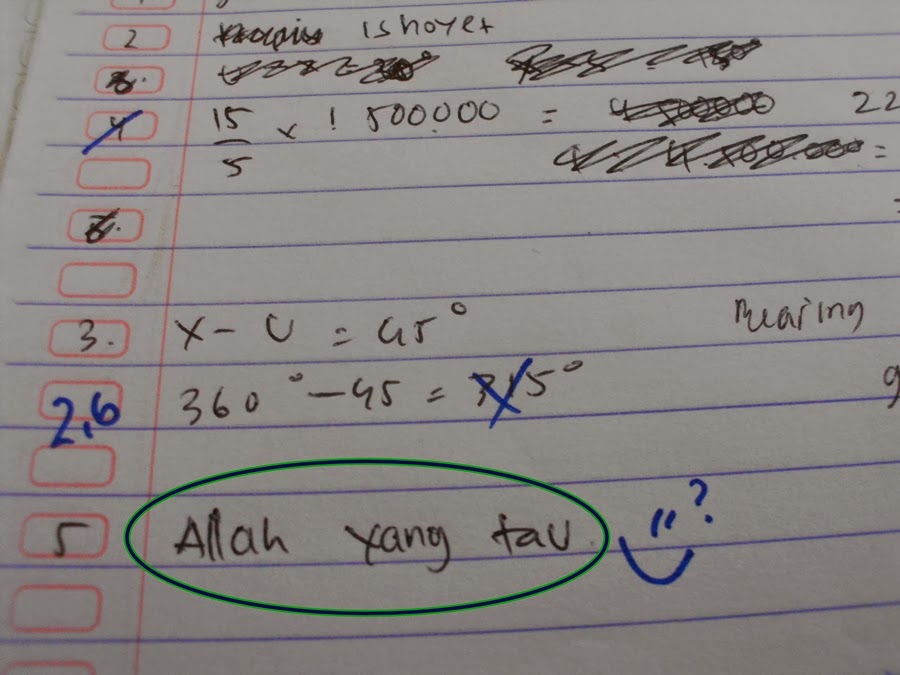 2 ishoyet
4 15/5 x 1 500.000 = 22
3. X - U = 45° Bearing
360° - 45 = 315° 9
2,6
5 Allah yang tau ?